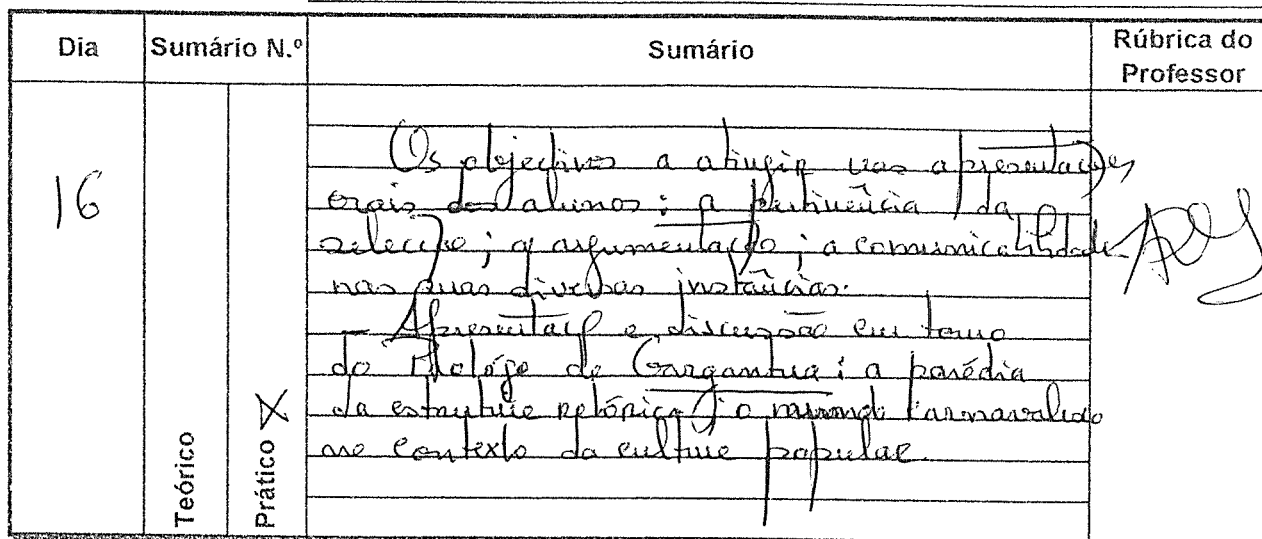 Dia Sumário N.º Sumário Rúbrica do Professor
16
Teórico
Prático X
Os objectivos a atingir nas apresentações
orais dos alunos: a pertinência da
selecção; a argumentação; a comunicabilidade
nas suas diversas instâncias.
- Apresentação e discussão em torno
do Prólogo de Gargantua: a paródia
da estrutura retórica; o mundo carnavalizado
no contexto da cultura popular